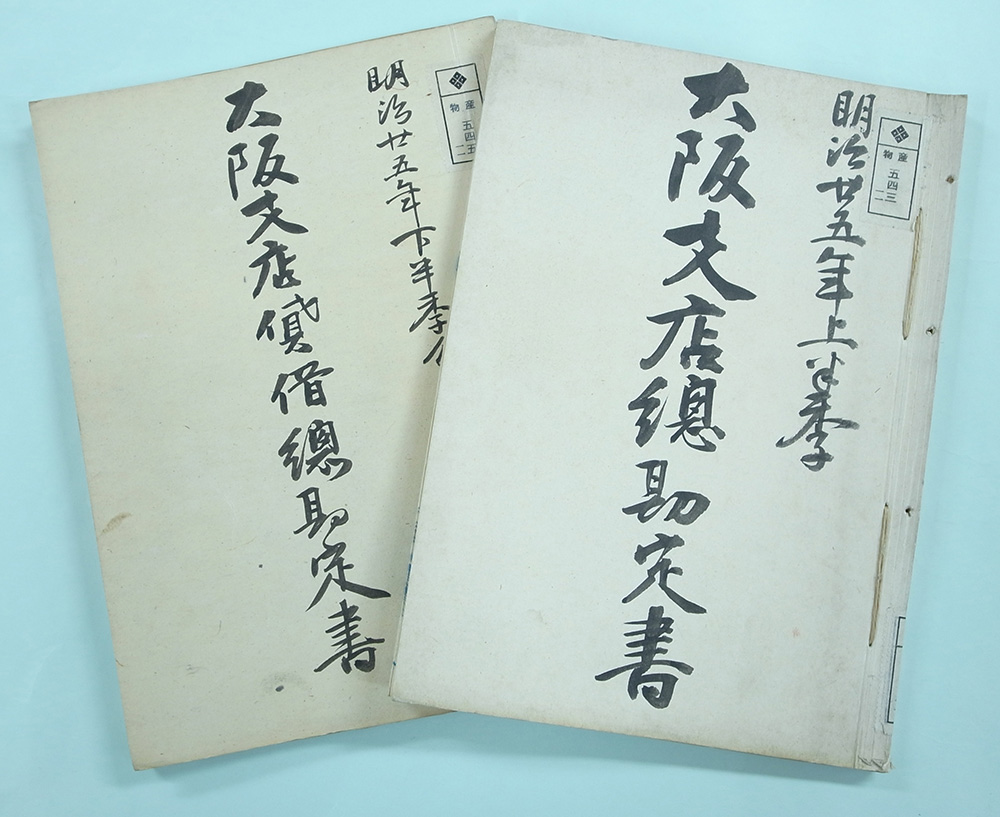 明治廿五年上半季
大阪支店總勘定書
物産
五四三
二
明治廿五年下半季
大阪支店貸借總勘定書
物産
五四五
二